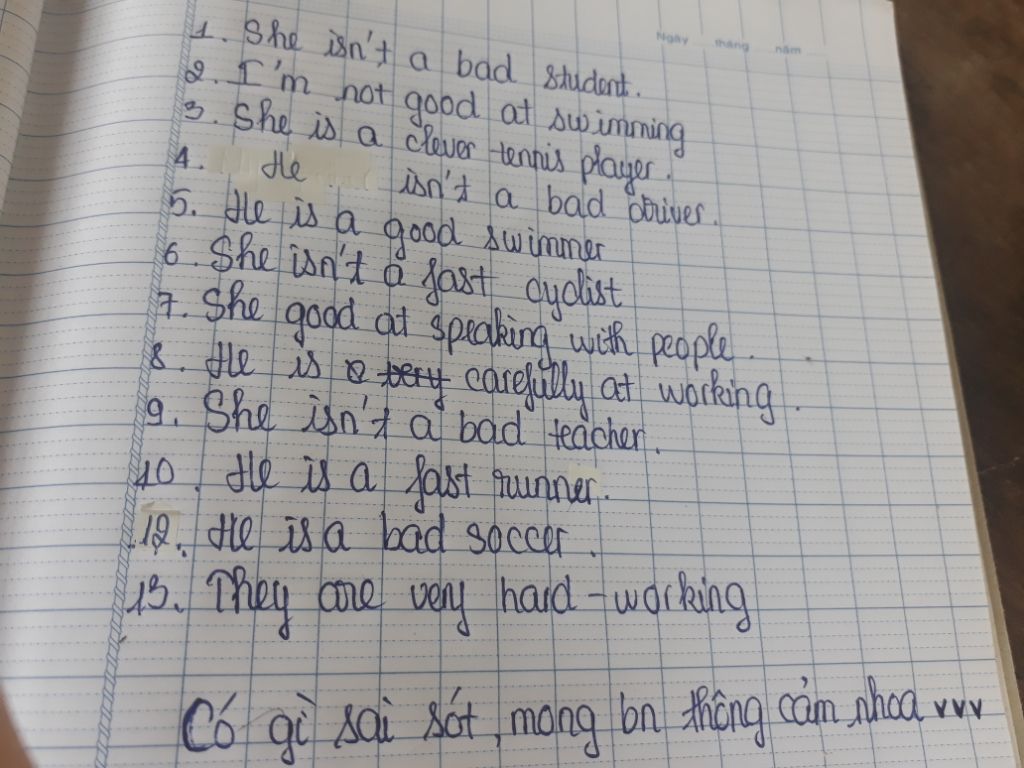 Ngày tháng năm
1. She isn't a bad student.
2. I'm not good at swimming
3. She is a clever tennis player.
4. He isn't a bad driver.
5. He is a good swimmer
6. She isn't a fast cyclist
7. She good at speaking with people.
8. He is a very carefully at working.
9. She isn't a bad teacher.
10. He is a fast runner.
12. He is a bad soccer.
13. They are very hard-working
Có gì sai sót, mong bn thông cảm nhoa vvv